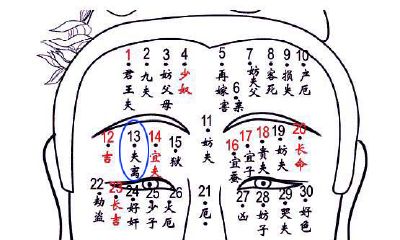 1 君王夫
2 九夫
3 妨父母
4 少奴
5 再嫁
6 亲害
7 妨夫父
8 客死
9 损夫
10 产厄
11 妨夫
12 吉
13 夫离
14 宜夫
15 狱
16 宜蚕
17 宜子
18 贵夫
19 妨夫
20 长命
21 厄
22 劫盗
23 长吉
24 好奸
25 少子
26 火厄
27 凶
28 妨子
29 哭夫
30 好色